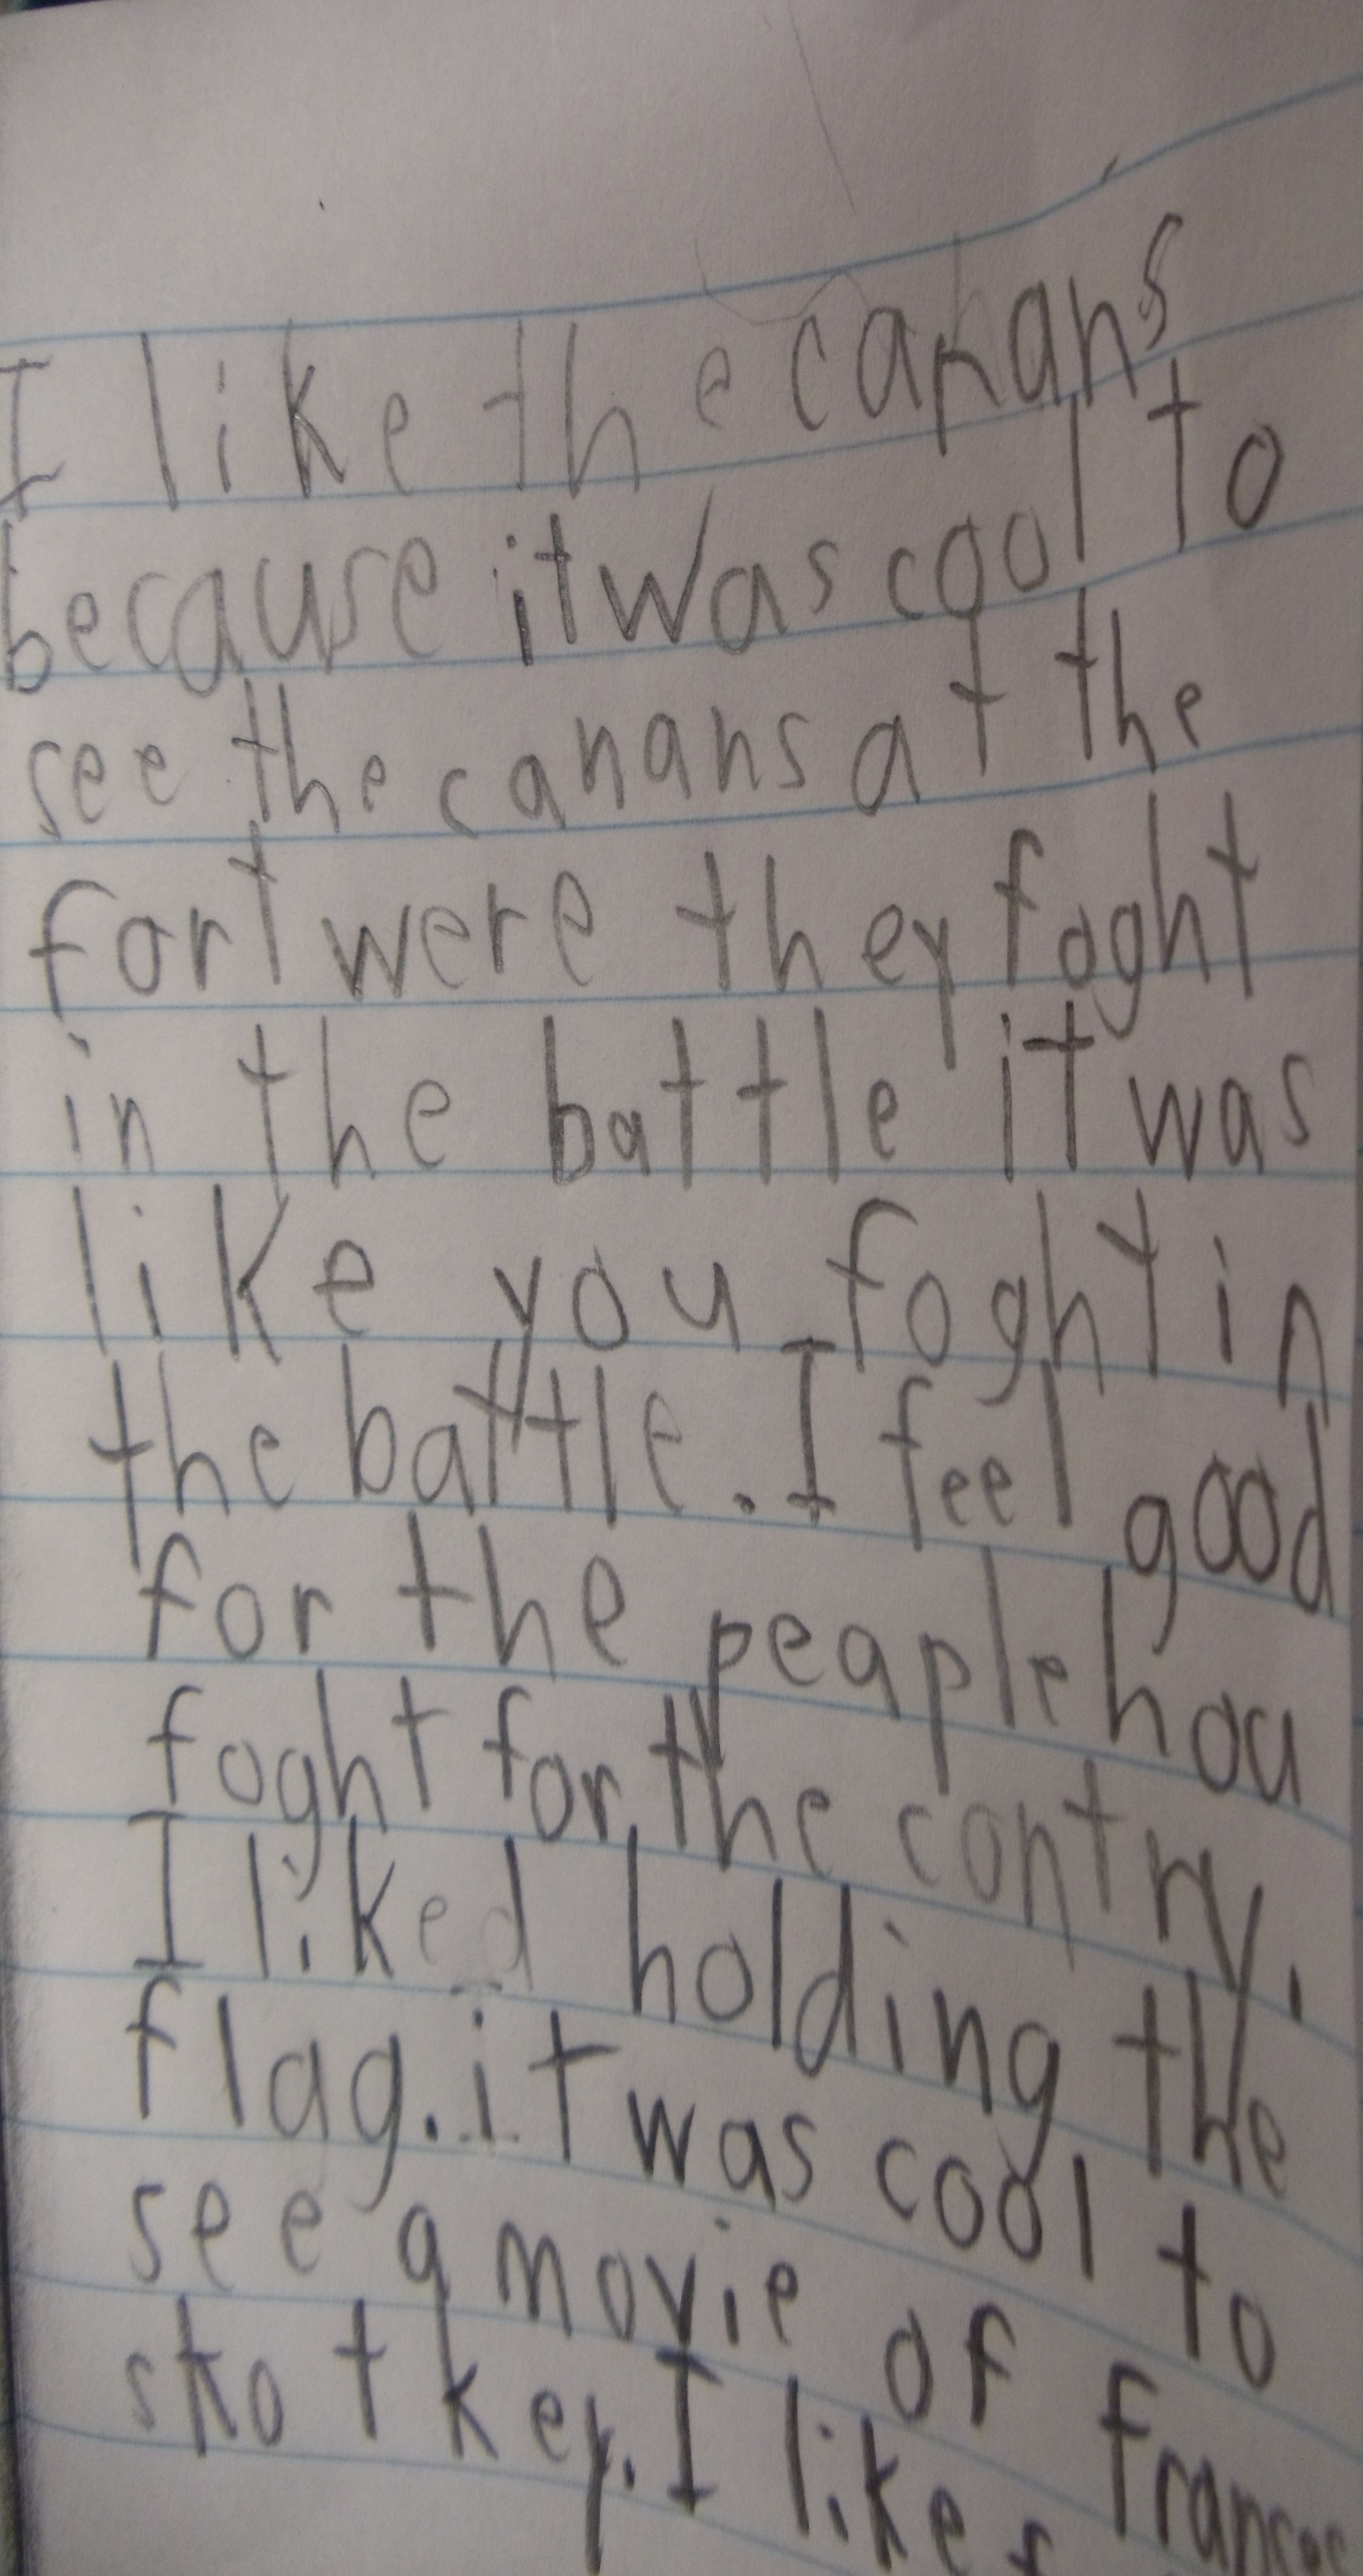 I like the canans
because it was cool to
see the canans at the
fort were they foght
in the battle it was
like you foght in
the battle. I feel good
for the peaple hou
foght for the contry.
I liked holding the
flag. it was cool to
see a movie of
skot key. I like